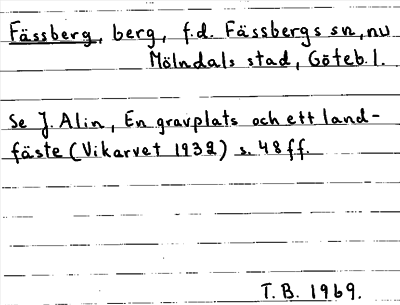 Fässberg, berg, f.d. Fässbergs sn, nu
Mölndals stad, Göteb. l.
Se J. Alin, En gravplats och ett land-
fäste (Vikarvet 1932) s. 48 ff.
T. B. 1969.